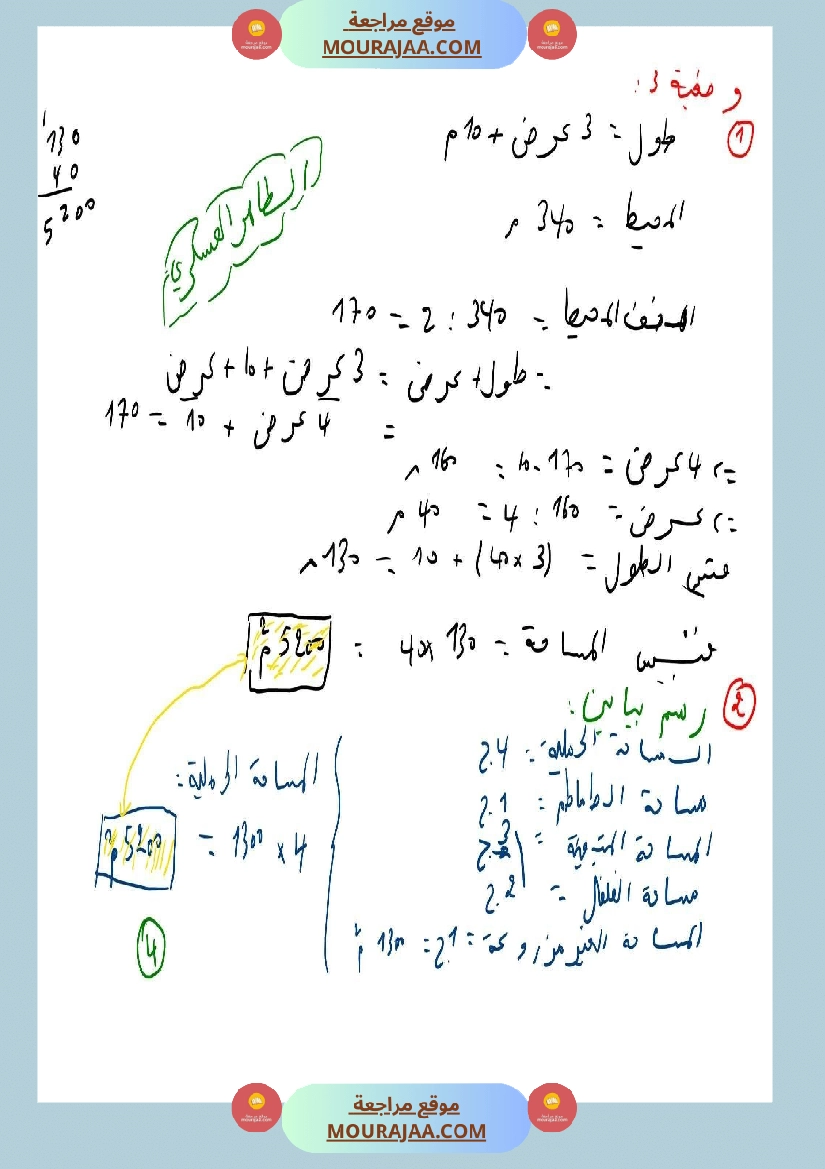 موقع مراجعة
MOURAJAA.COM
وضعية 3 :
1
طول = 3 عرض + 10 م
المحيط = 340 م
130
40
5200
الطاهر العسكري
نصف المحيط = 340 : 2 = 170
= طول + عرض = 3 عرض + 10 + عرض
= 4 عرض + 10 = 170
=> 4 عرض = 170 - 10 = 160 م
=> عرض = 160 : 4 = 40 م
الطول = (3 × 40) + 10 = 130 م
المساحة = 130 × 40 = 5200 م²
2 رسم بياني :
المساحة الجملية : 4 ج
مساحة الطماطم : 1 ج
المساحة المتبقية = 3 ج
مساحة الفلفل = 2 ج
المساحة الغير مزروعة = 1 ج = 1300 م²
المساحة الجملية :
4 × 1300 = 5200 م²
4
موقع مراجعة
MOURAJAA.COM